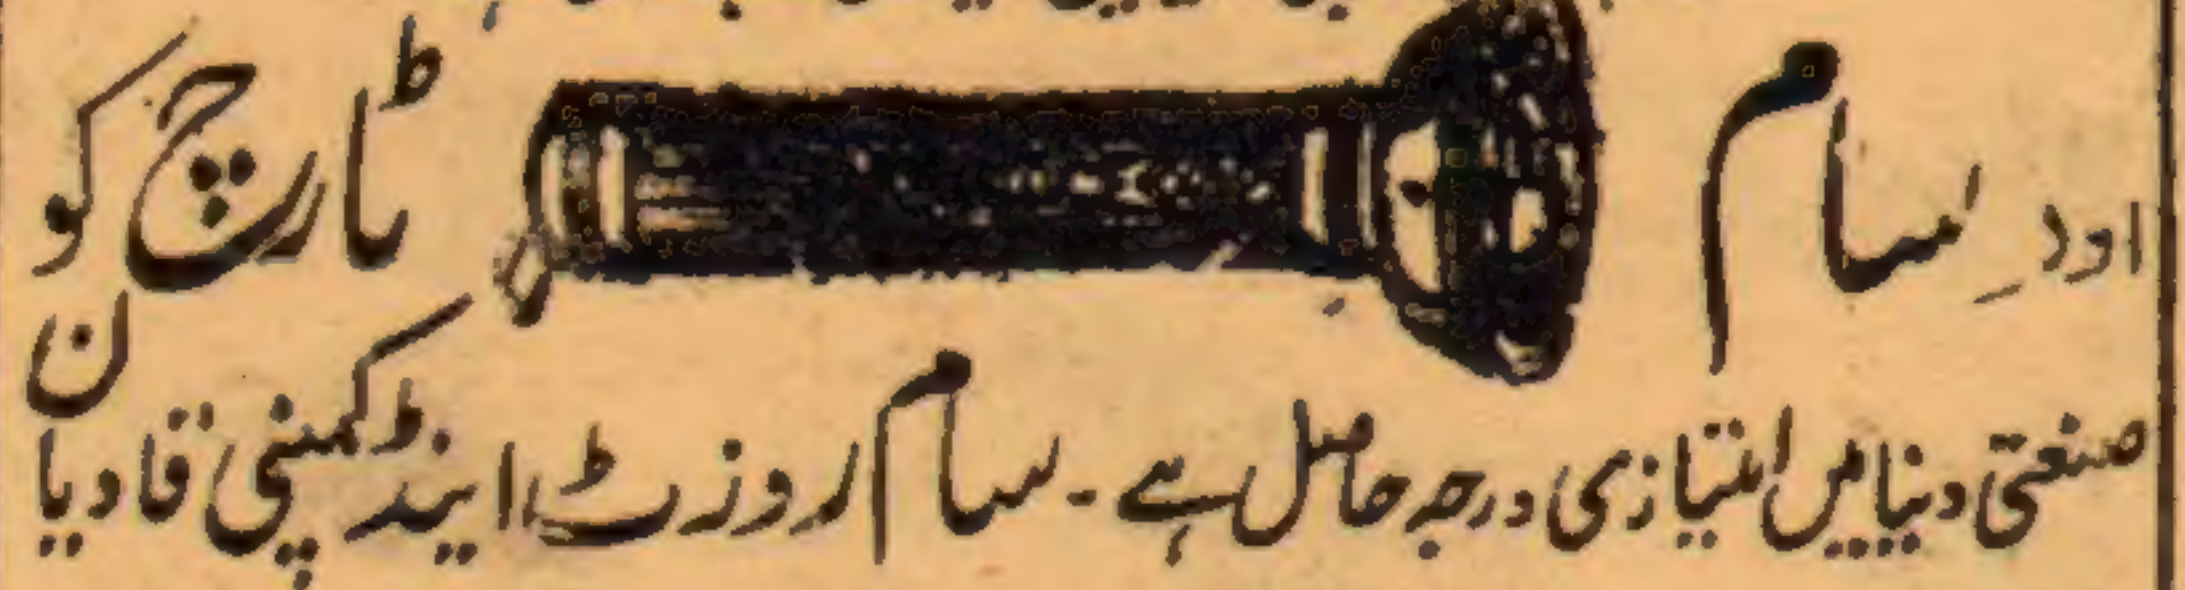 اور سام ٹارچ کو
صنعتی دنیا میں امتیازی درجہ حاصل ہے - سام روزٹ اینڈ کمپنی قادیان